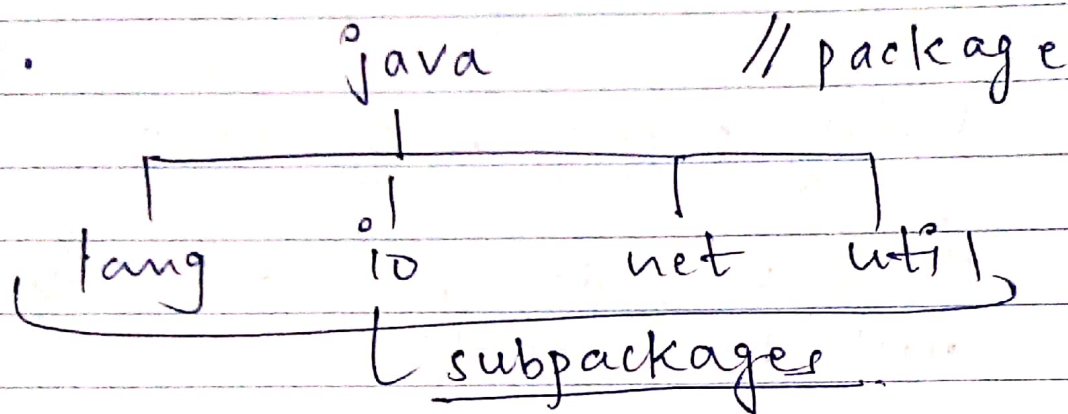 java // package
lang io net util
subpackages